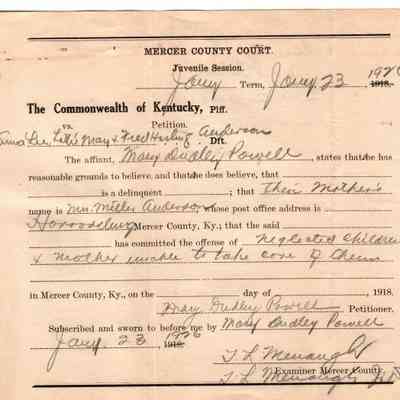 MERCER COUNTY COURT.
Juvenile Session.
Jany Term, Jany. 23 1926
1918.
The Commonwealth of Kentucky, Plf.
vs. Petition.
Lee, Lillie May & Fred Anderson
Dft.
The affiant, Mary Dudley Powell, states that he has
reasonable grounds to believe, and that he does believe, that
is a delinquent ; that Their Mother's
name is Mrs. Miller Anderson, whose post office address is
Harrodsburg Mercer County, Ky.; that the said
has committed the offense of Neglected children
& Mother unable to take care of them
in Mercer County, Ky., on the day of , 1918.
Mary Dudley Powell Petitioner.
Subscribed and sworn to before me by Mary Dudley Powell
Jany. 23, 1918. 1926
T L Menaugh
Examiner Mercer County.
T. L. Menaugh